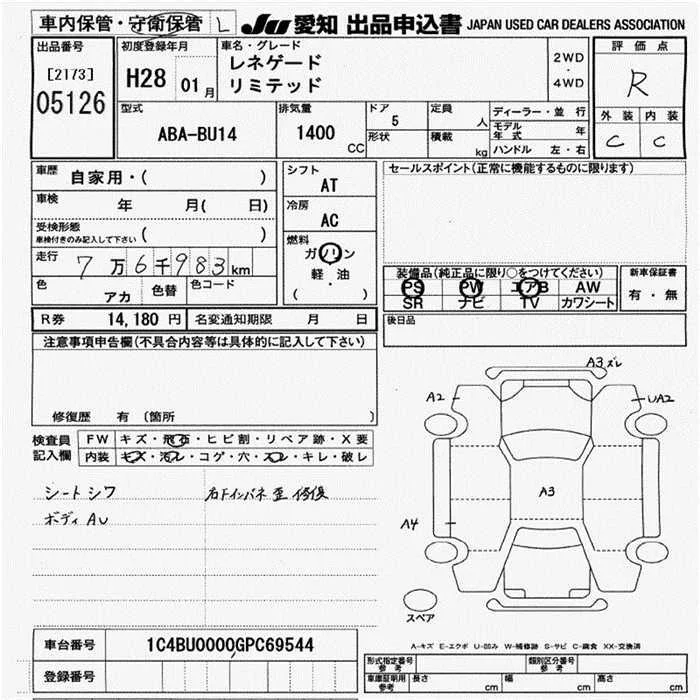 車内保管・守衛保管 L JU 愛知 出品申込書 JAPAN USED CAR DEALERS ASSOCIATION
出品番号
[2173]
05126
初度登録年月
H28 01月
車名・グレード
レネゲード
リミテッド
2WD
・
4WD
評価点
R
外装 内装
C C
型式
ABA-BU14
排気量
1400 CC
ドア
5
形状
定員
人
積載
kg
ディーラー・並行
モデル年式 年
ハンドル 左・右
車歴 自家用・( )
車検 年 月( 日)
受検形態
車検付きのみ記入して下さい ( )
走行 7万6千983km
色 アカ 色替 色コード
シフト
AT
冷房
AC
燃料
ガソリン
軽・油
( )
セールスポイント(正常に機能するものに限ります)
装備品(純正品に限り○をつけてください)
PS PW エアB AW
SR ナビ TV カワシート
新車保証書
有・無
後日品
R券 14,180 円 名変通知期限 月 日
注意事項申告欄(不具合内容等は具体的に記入して下さい)
修復歴 有 〔箇所 〕
検査員記入欄
FW キズ・飛石・ヒビ割・リペア跡・X要
内装 キズ・汚レ・コゲ・穴・スレ・キレ・破レ
シートシワ
ボディ AU
右Fインパネ歪修復
A3ズレ
A2
UA2
A3
A4
スペア
A-キズ E-エクボ U-凹み W-補修跡 S-サビ C-腐食 XX-交換済
車台番号 1C4BU0000GPC69544
登録番号
形式指定番号 参考
類別区分番号 参考
車庫証明用 参考 長さ cm 幅 cm 高さ cm